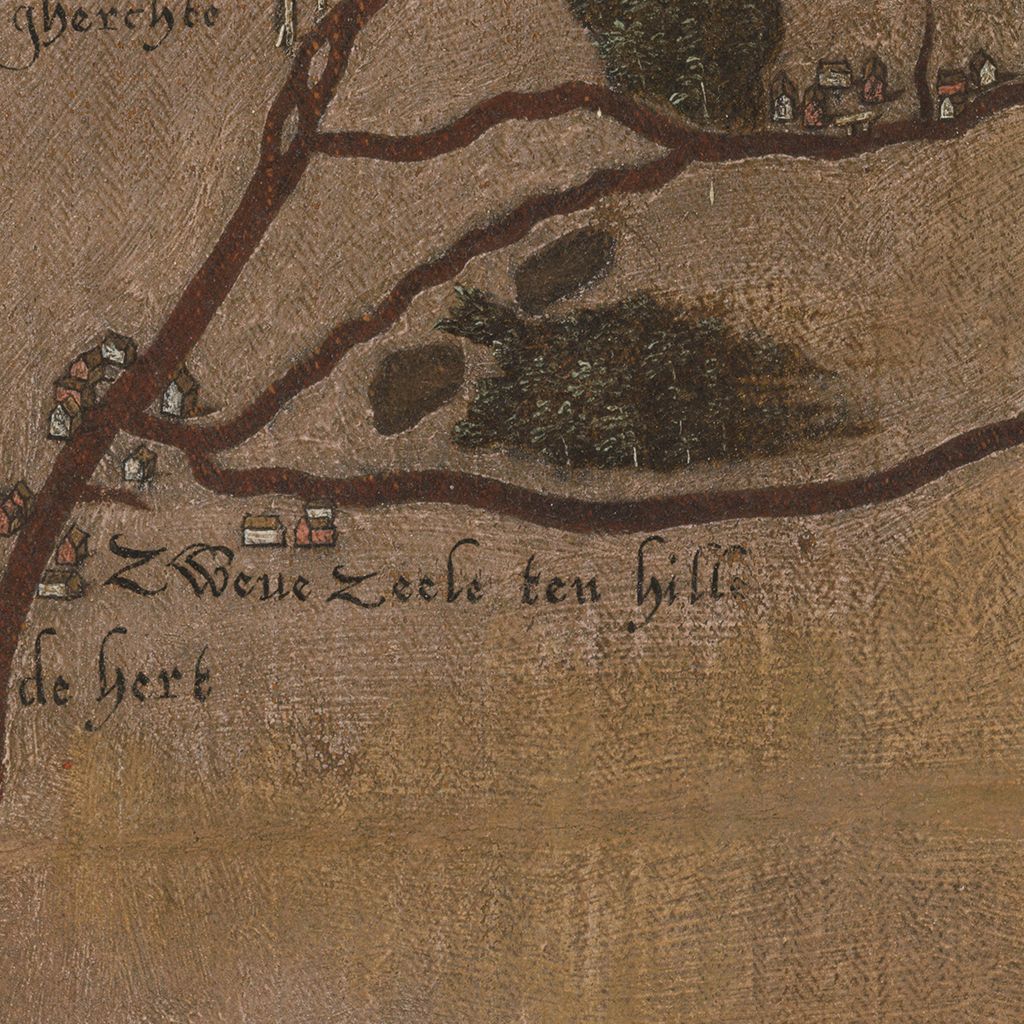 gherchte
Zweue zeele ten hille
de hert